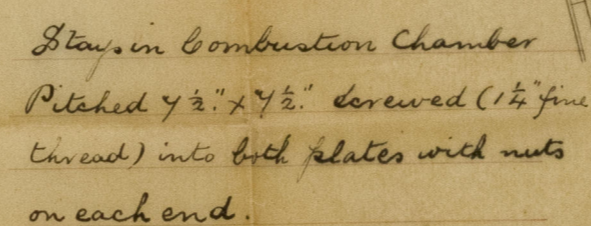 Stays in Combustion Chamber
Pitched 7½" x 7½" Screwed (1¼" fine
thread) into both plates with nuts
on each end.